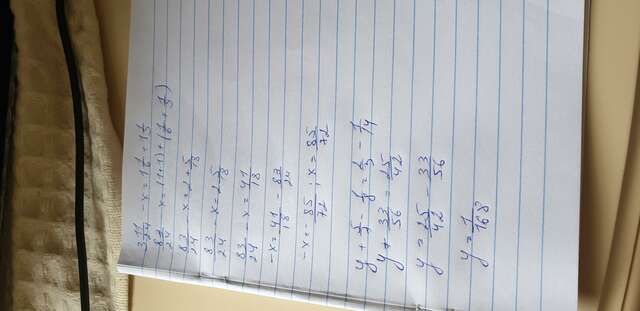 3 11/24 - x = 1 1/6 + 1 1/9
83/24 - x = (1+1) + (1/6 + 1/9)
83/24 - x = 2 + 5/18
83/24 - x = 2 5/18
83/24 - x = 41/18
-x = 41/18 - 83/24
-x = -85/72 ; x = 85/72
y + 5/7 - 1/8 = 2/3 - 1/14
y + 33/56 = 25/42
y = 25/42 - 33/56
y = 1/168